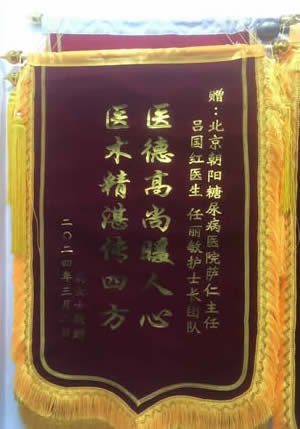 赠：北京朝阳糖尿病医院萨仁主任
吕国红医生 任丽敏护士长团队
医德高尚暖人心
医术精湛传四方
二〇二四年三月